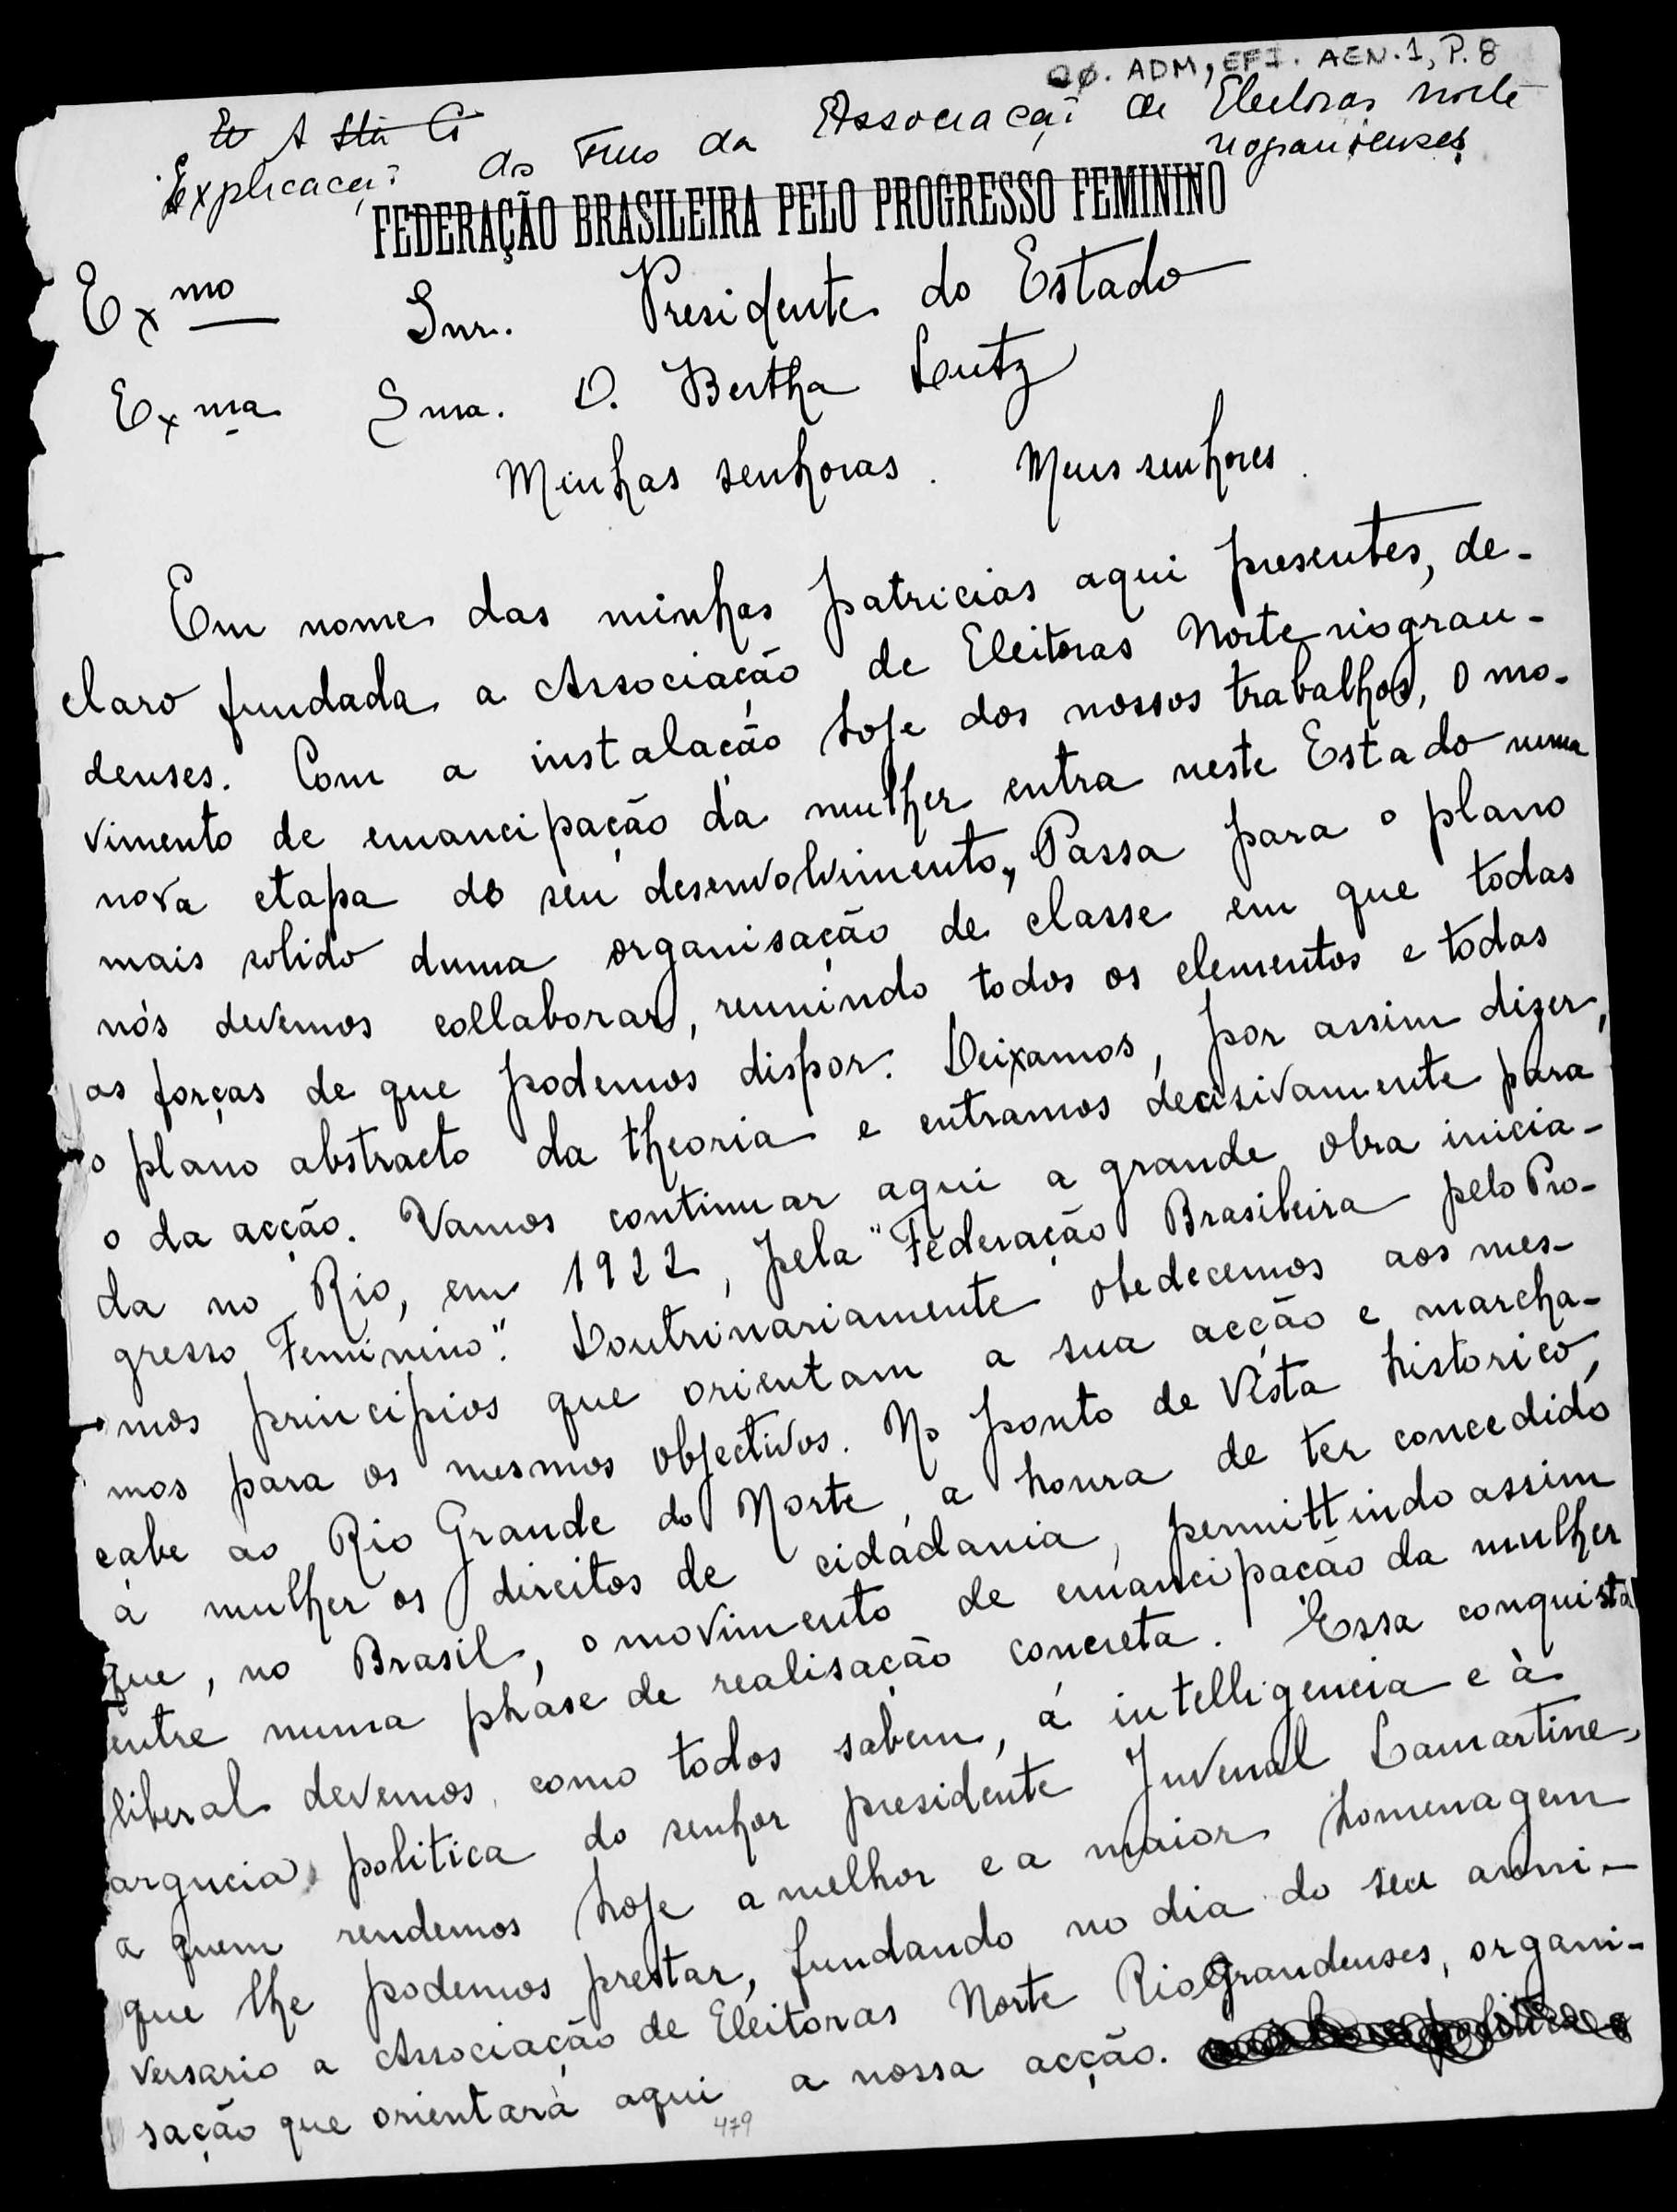 QØ. ADM, EFI. AEN.1, P.8
A
Explicação do Fins da Associação de Eleitoras Norte
riograndenses
FEDERAÇÃO BRASILEIRA PELO PROGRESSO FEMININO
Exmo Snr. Presidente do Estado
Exma Snra. D. Bertha Lutz
Minhas senhoras. Meus senhores.
Em nome das minhas patricias aqui presentes, de-
claro fundada a Associação de Eleitoras Norte riogran-
denses. Com a instalação hoje dos nossos trabalhos, o mo-
vimento de emancipação da mulher entra neste Estado numa
nova etapa do seu desenvolvimento, Passa para o plano
mais solido duma organisação de classe em que todas
nós devemos collaborar, reunindo todos os elementos e todas
as forças de que podemos dispor. Deixamos, por assim dizer,
o plano abstracto da theoria e entramos decisivamente para
o da acção. Vamos continuar aqui a grande obra inicia-
da no Rio, em 1922, pela "Federação Brasileira pelo Pro-
gresso Feminino". Doutrinariamente obedecemos aos mes-
mos principios que orientam a sua acção e marcha-
mos para os mesmos objectivos. No ponto de vista historico,
cabe ao Rio Grande do Norte, a honra de ter concedido
á mulher os direitos de cidadania, permittindo assim
que, no Brasil, o movimento de emancipação da mulher
entre numa phase de realisação concreta. Essa conquista
liberal devemos, como todos sabem, á intelligencia e à
argucia politica do senhor presidente Juvenal Lamartine,
a quem rendemos hoje a melhor e a maior homenagem
que lhe podemos prestar, fundando no dia do seu anni-
versario a Associação de Eleitoras Norte RioGrandenses, organi-
sação que orientará aqui a nossa acção.
479